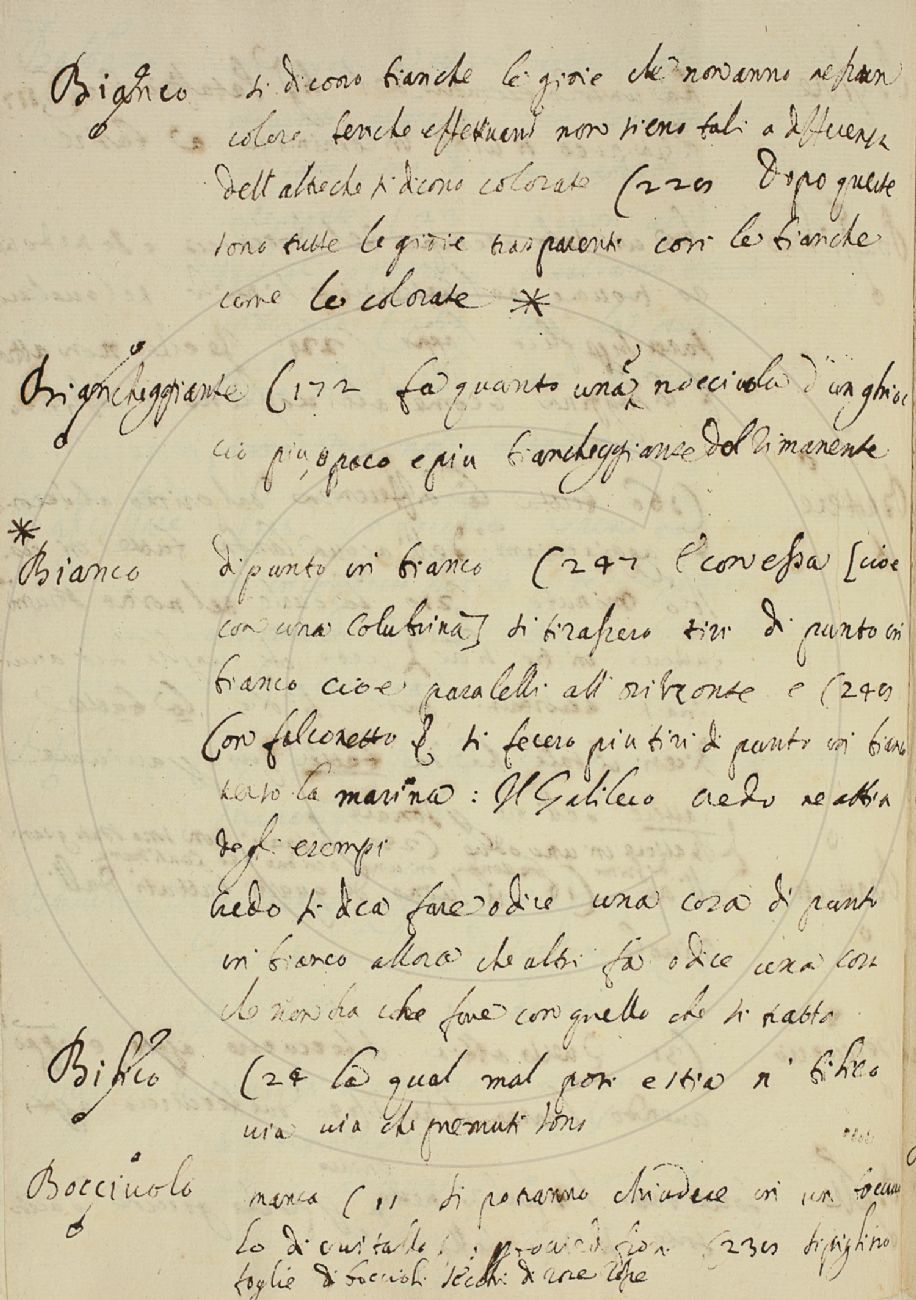 Bianco si dicono bianche le gioie che non anno nessun
colore benche effettivam.e non sieno tali a differenza
dell'altre che si dicono colorate (229 Dopo queste
sono tutte le gioie trasparenti cosi le bianche
come le colorate *
Biancheggiante (172 fa quanto una nocciuola d'un ghioc
cio piu, o poco e piu biancheggiante del rimanente
*
Bianco di punto in bianco (247 E con essa [cioe
con una Colubrina] si tirassero tiri di punto in
bianco cioe paralelli all'orizzonte e (249
Con falconetto si fecero piu tiri di punto in bianco
verso la marina: Il Galileo credo ne abbia
degli esempi
credo si dica fare o dire una cosa di punto
in bianco allora che altri fa o dice una cosa
che non ha che fare con quello che si tratta
Bisico (24 la qual mal posi e stia n' bisico
via via che premuti sono
Bocciuolo manca (11 si potranno chiudere in un bocciuo
lo di cristallo (239 si piglino
foglie di boccioli secchi di rose